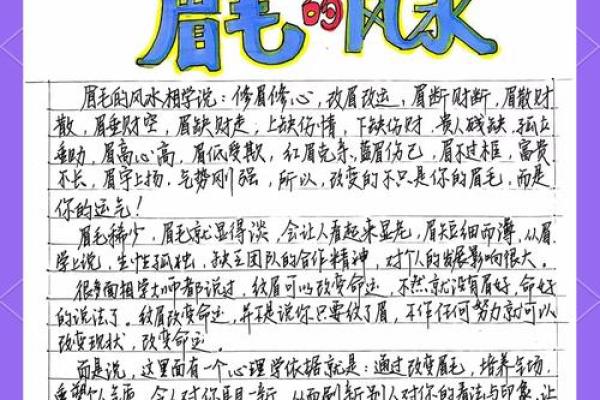 眉毛的风水
眉毛的风水相学说：修眉修心，改眉改运，眉断财断，眉散财
散，眉垂财空，眉缺财走，上缺伤情，下缺伤财，贵人残缺，孤立
无助，眉高心高，眉低受欺，红眉克亲，蓝眉伤己，眉不过框，富贵
不长，眉宇上扬，气势刚强，所以，改变的不只是你的眉毛，而是
你的运气！
眉毛稀少，眉毛就显得淡，会让人看起来显老，眉短细而薄，从眉
学上说，生性孤独，缺乏团队的合作精神，对个人的发展影响很大。
很多面相学大师都说过，纹眉可以改变命运，不然就没有眉好，命好
的说法了。纹眉改变命运，并不是说你只要纹了眉，不作任何努力就可以
改变现状，改变命运。
而是说，这里面有一个心理学依据就是：通过改变眉毛，培养气场，
重塑个人气质，令人对你耳目一新，从而刷新别人对你的看法与印象，让